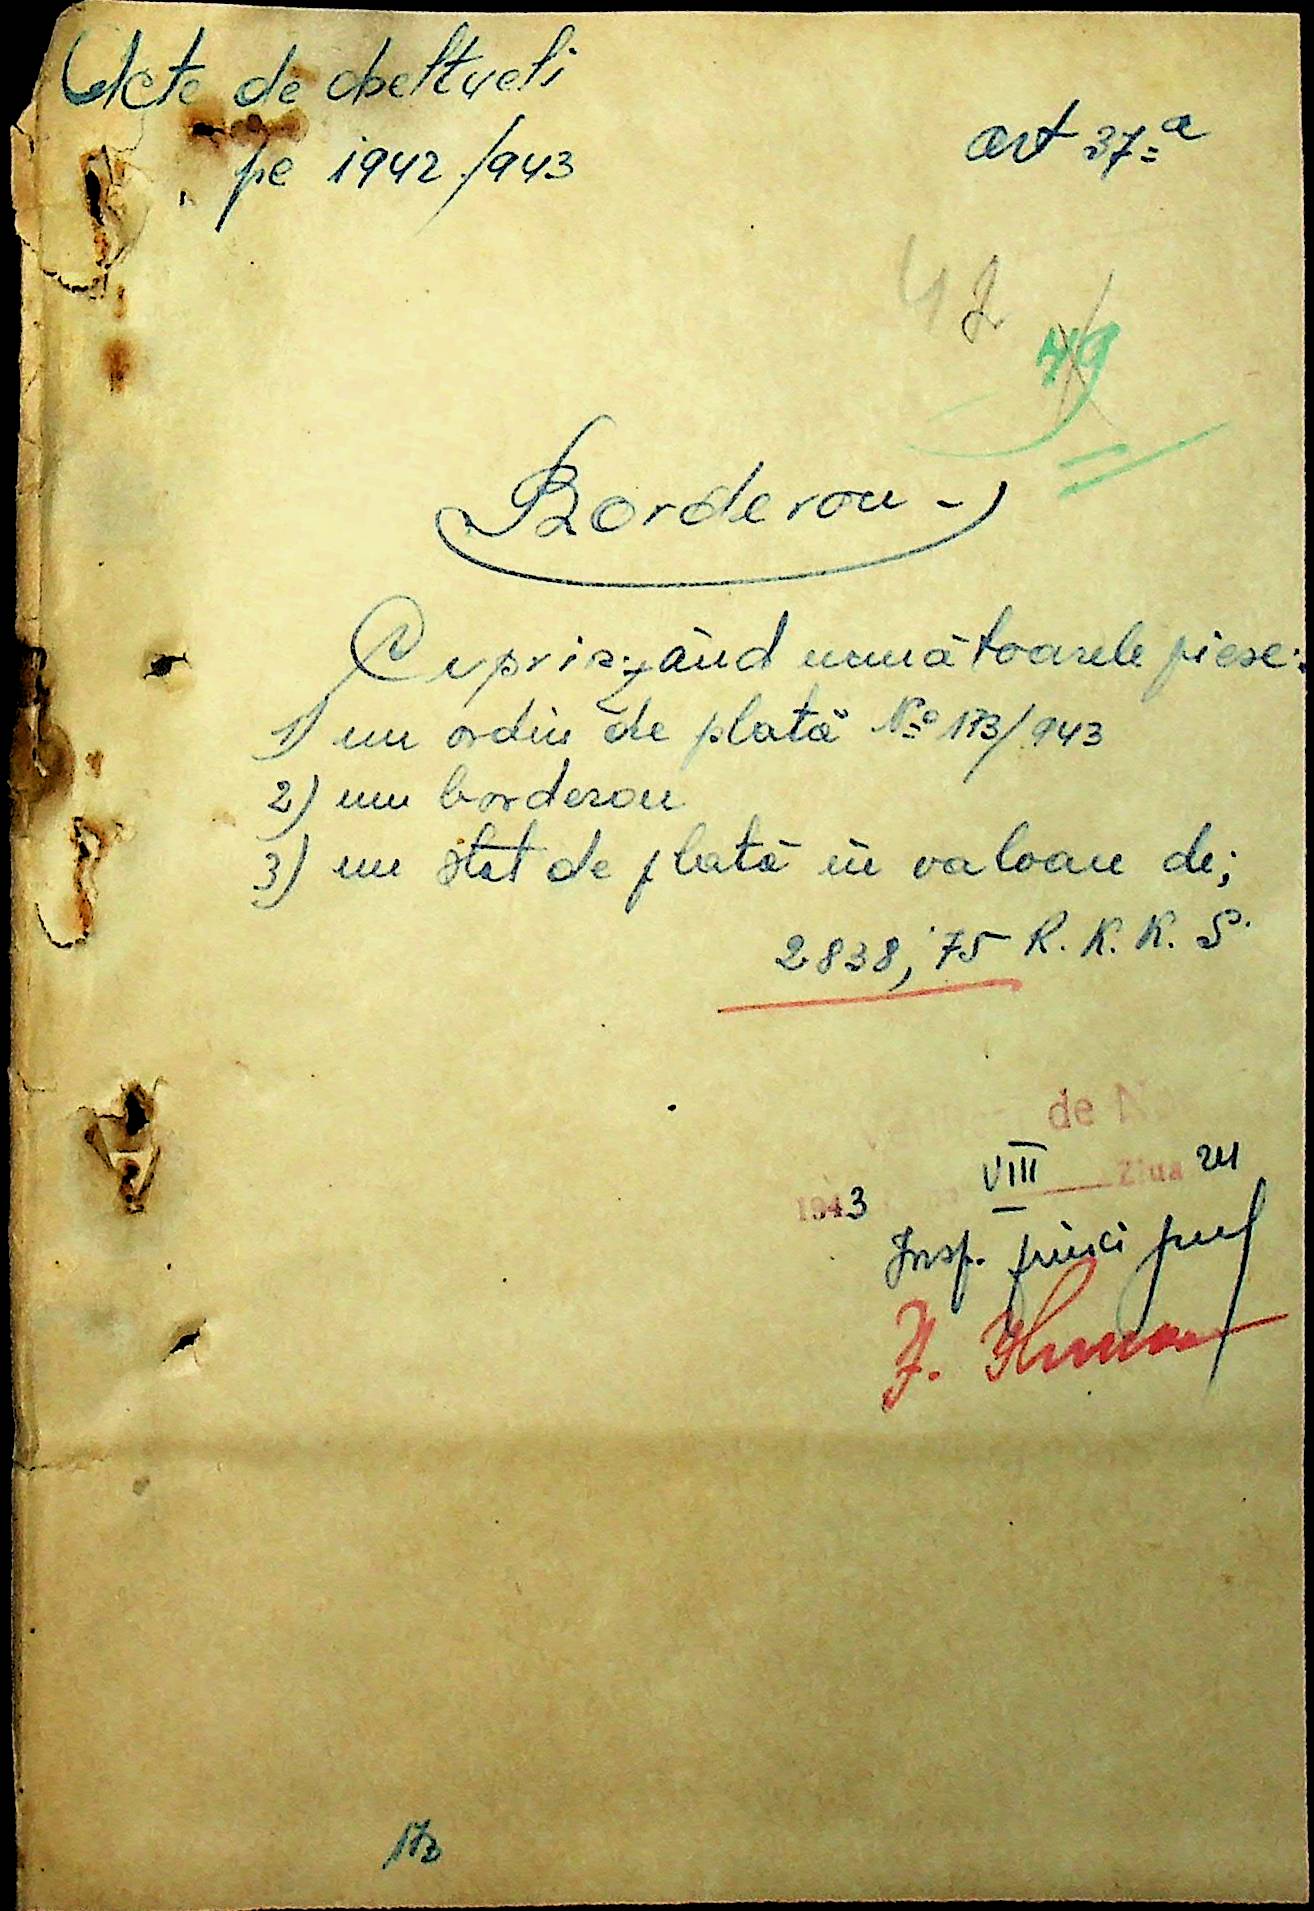 Acte de cheltueli
pe 1942/943
art 37=a
49
Borderou -
Cuprinzând următoarele piese:
1) un ordin de plată No 173/943
2) un borderou
3) un stat de plată în valoare de;
2838,75 R. K. K. S.
de
1943 VIII Ziua 24
Insp.
173